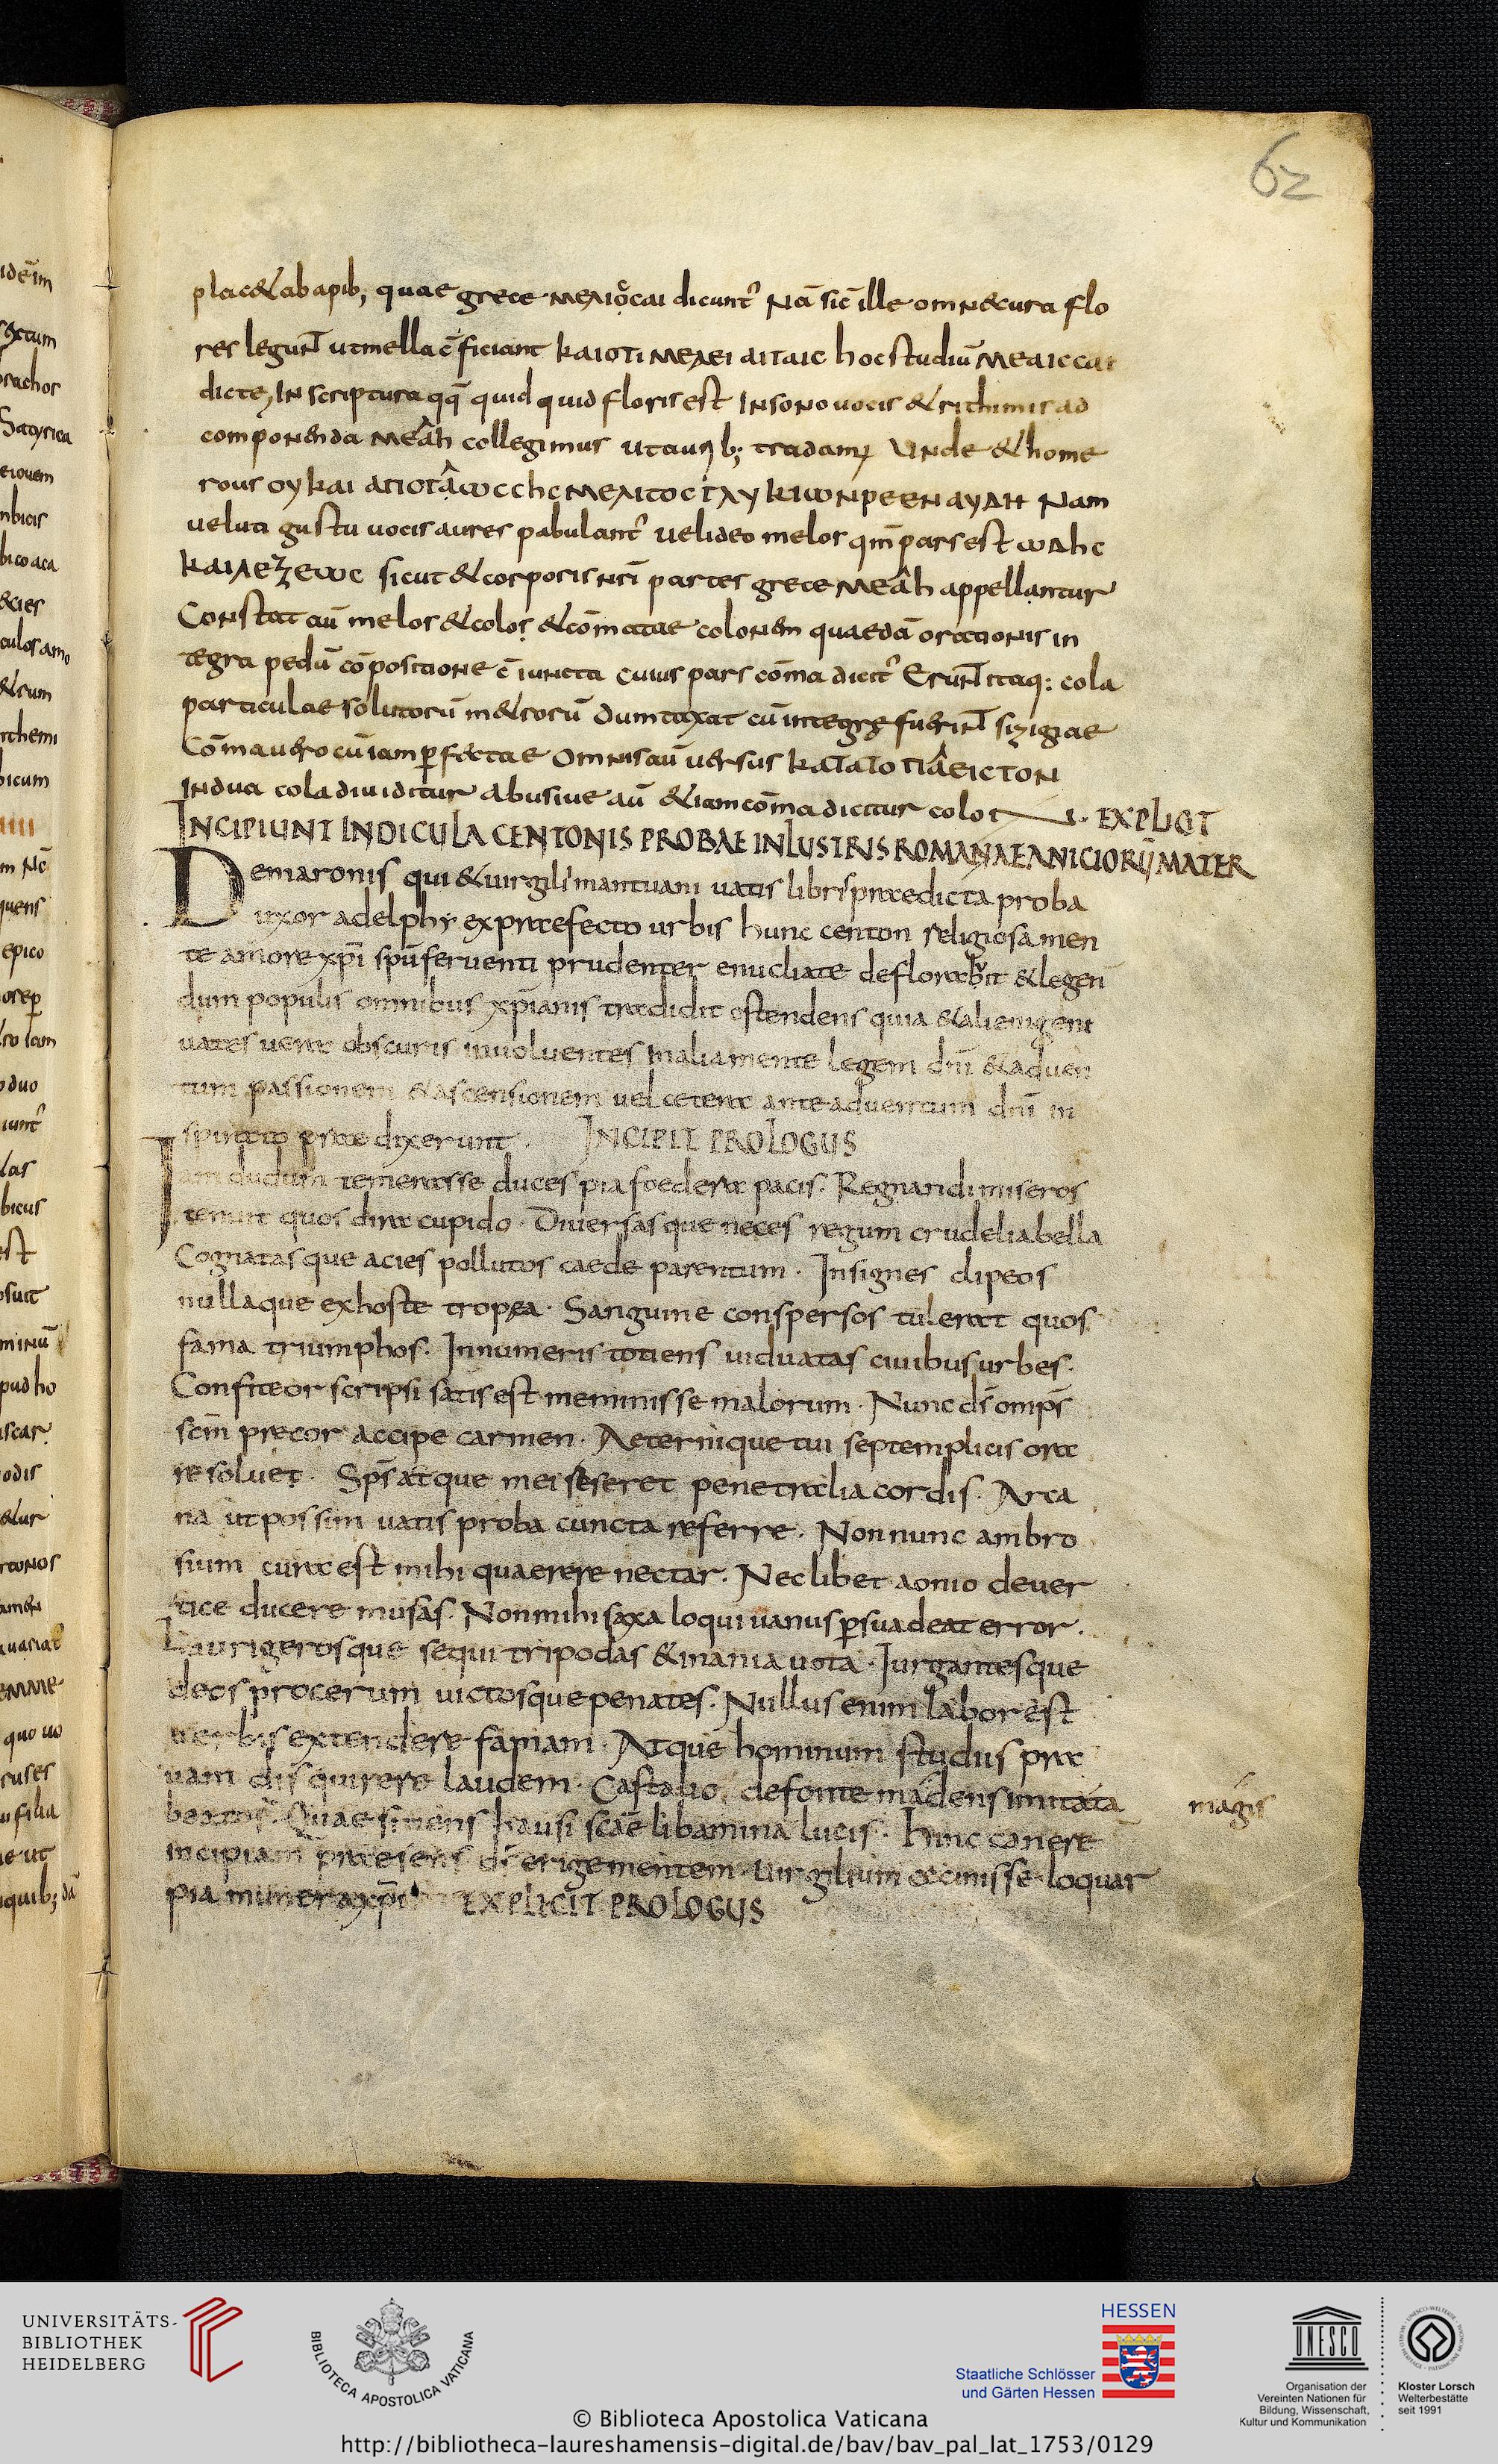 62
plac&abapib; quae grece dicunt᷒ Nā sic̄ ille omn&cura flo
res legunt utmella c̄ficiant hocstudiū
dicte, IN scriptura qq̄ quid quid florisest INsonouocis &rithimisad
componenda collegimus utaurib; tradam; UNde &home
rous Nam
uelua gustu uocisaures pabulant᷒ uelideo melos qm̄ parsest
sicut &corporis nr̄i partes grece appellantur
CoNstat aū melos &colos &cōmatae colonem quaedā orationis in
tegra pedū cōpositione c̄ iuncta cuius pars cōma dicit᷒ Erunt itaq: cola
particulae solutorū m&rorū dumtaxat cū integrę fuerint sizigiae
Cōmauero cū iam ꝑfectae Omnisaū uersus
INdua coladiuiditur abusiue aū &iamcōmadicitur colo EXPLICIT
INCIPIUNT INDICULA CENTONIS PROBAE INLUSTRIS ROMANAE ANICIORŪ MATER
Demaronis qui &uirgilimantuani uatis librispraedicta proba
uxor adelphi expraefecto urbis hunc centon religiosamen
te amore xp̄i spū feruenti prudenter enucliate deflorabit &legen
dum populis omnibus xp̄ianis tradidit ostendens quia &alienigent
uates uera obscuris inuoluentes maliamente legem dn̄i &aduen
tum passionem &ascensionem uel cetera anteaduentum dn̄i in
spirato prae dixerunt. INCIPIT PROLOGUS
Iam dudum temerasse duces pia foedera pacis. Regnandimiseros
tenuit quos dira cupido. Diuersasque neces regum crudeliabella
Cognatasque acies pollutos caede parentum. Insignes clipeos
nullaque exhoste tropęa. Sanguine conspersos tulerat quos
fama triumphos. Innumeris totiens uiduatas ciuibusurbes.
Confiteor scripsi satisest meminisse malorum. Nunc ds̄ omps̄
scm̄ precor accipe carmen. Aeternique tui septemplicis ora
resoluet. Sps̄ atque mei seseret penetralia cordis. Arca
na ut possim uatis proba cuncta referre. Nonnunc ambro
sium cura est mihi quaerere nectar. Neclibet aonio deuer
tice ducere musas. Nonmihi saxa loqui uanus ꝑsuadeat error.
Laurigerosque sequi tripodas &inania uota. Iurgantesque
deos procerum uictosque penates. Nullus enim labor est
uerbis extendere famam. Atque hominum studiis pra
uam disquirere laudem. Castalio defonte madens imitata
magis
beatos. Quae sitiens hausi scāe libamina lucis. Hinc canere
incipiam praesens ds̄ erige mentem. Uirgilium cecinisse loquar
pia munera xp̄i EXPLICIT PROLOGUS
UNIVERSITÄTS-
BIBLIOTHEK
HEIDELBERG
BIBLIOTECA APOSTOLICA VATICANA
HESSEN
Staatliche Schlösser
und Gärten Hessen
UNESCO
Organisation der
Vereinten Nationen für
Bildung, Wissenschaft,
Kultur und Kommunikation
Kloster Lorsch
Welterbestätte
seit 1991
© Biblioteca Apostolica Vaticana
http://bibliotheca-laureshamensis-digital.de/bav/bav_pal_lat_1753/0129